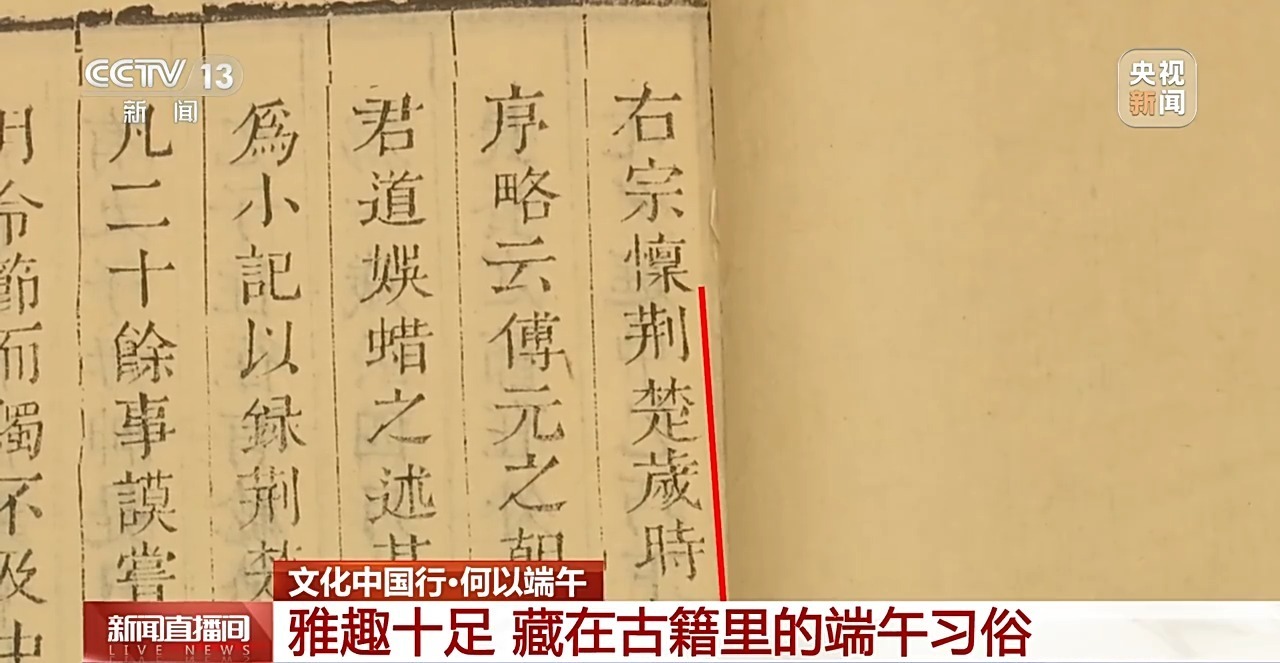 CCTV 13
新闻
央视
新闻
右宗懍荆楚歲時
序略云傅元之朝
君道娛蜡之述其
爲小記以録荆楚
凡二十餘事謨嘗
月令節而獨不及中
文化中国行·何以端午
新闻直播间
LIVE NEWS
雅趣十足 藏在古籍里的端午习俗